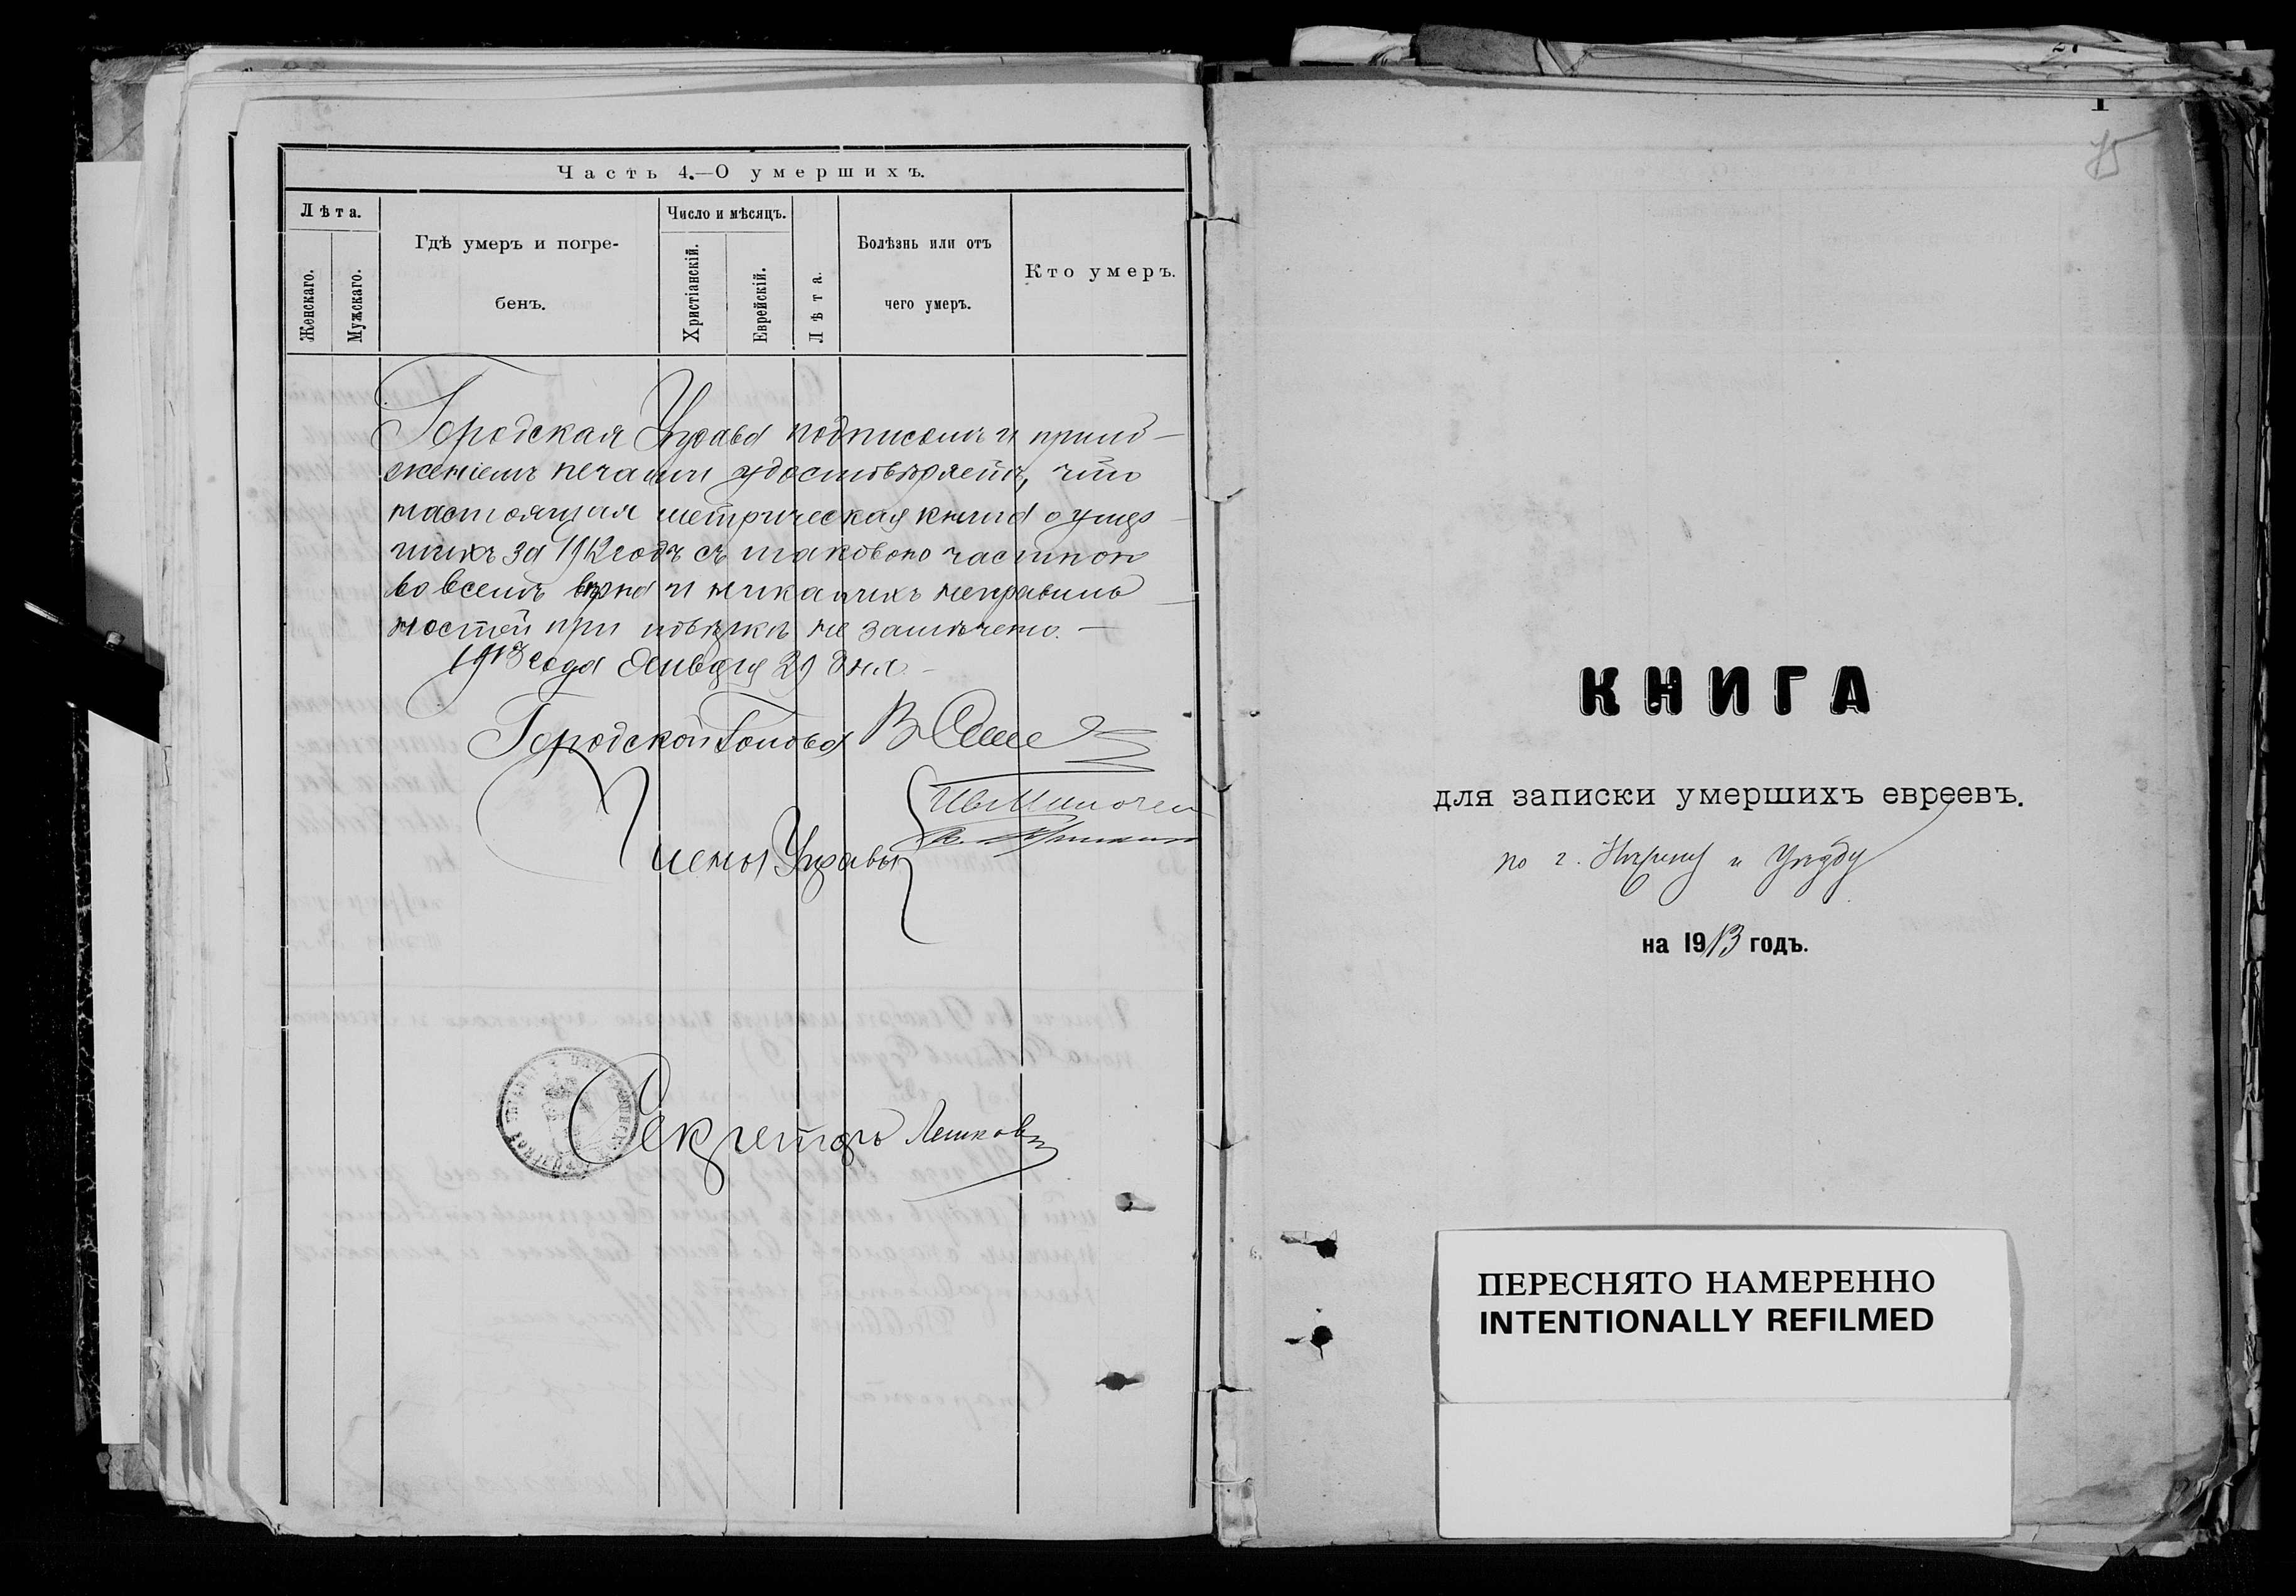 Часть 4.—О умершихъ.
Лѣта.
Женскаго.
Мужскаго.
Гдѣ умеръ и погре-
бенъ.
Число и мѣсяцъ.
Христіанскій.
Еврейскій.
Лѣта.
Болѣзнь или отъ
чего умеръ.
Кто умеръ.
Городская Управа подписомъ и прило-
женіемъ печати удостовѣряетъ, что
настоящая метрическая книга о умер
шихъ за 1912 годъ съ таковою частною
во всемъ вѣрна и никакихъ неправиль
ностей при повѣркѣ не замѣчено.
1913 года Января 29 дня.
Городской Голова
Члены Управы
Секретарь
1
75
КНИГА
для записки умершихъ евреевъ.
по г. Нѣжину и Уѣзду
на 1913 годъ.
ПЕРЕСНЯТО НАМЕРЕННО
INTENTIONALLY REFILMED